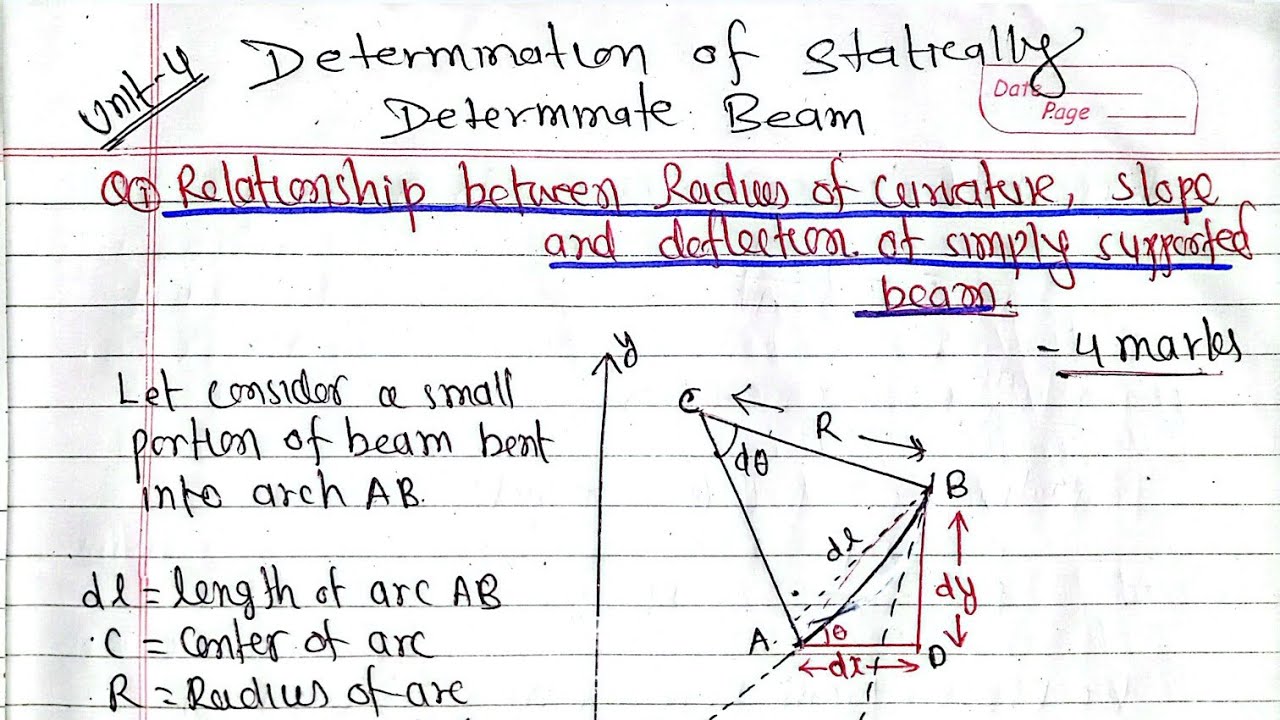 Unit-4
Determination of Statically
Determinate Beam
Date
Page
Q① Relationship between Radius of Curvature, slope
and deflection of simply supported
beam.
- 4 marks
Let consider a small
portion of beam bent
into arch AB.
dl = length of arc AB
C = Center of arc
R = Radius of arc
y
C
R
dθ
B
dl
dy
A
θ
dx
D